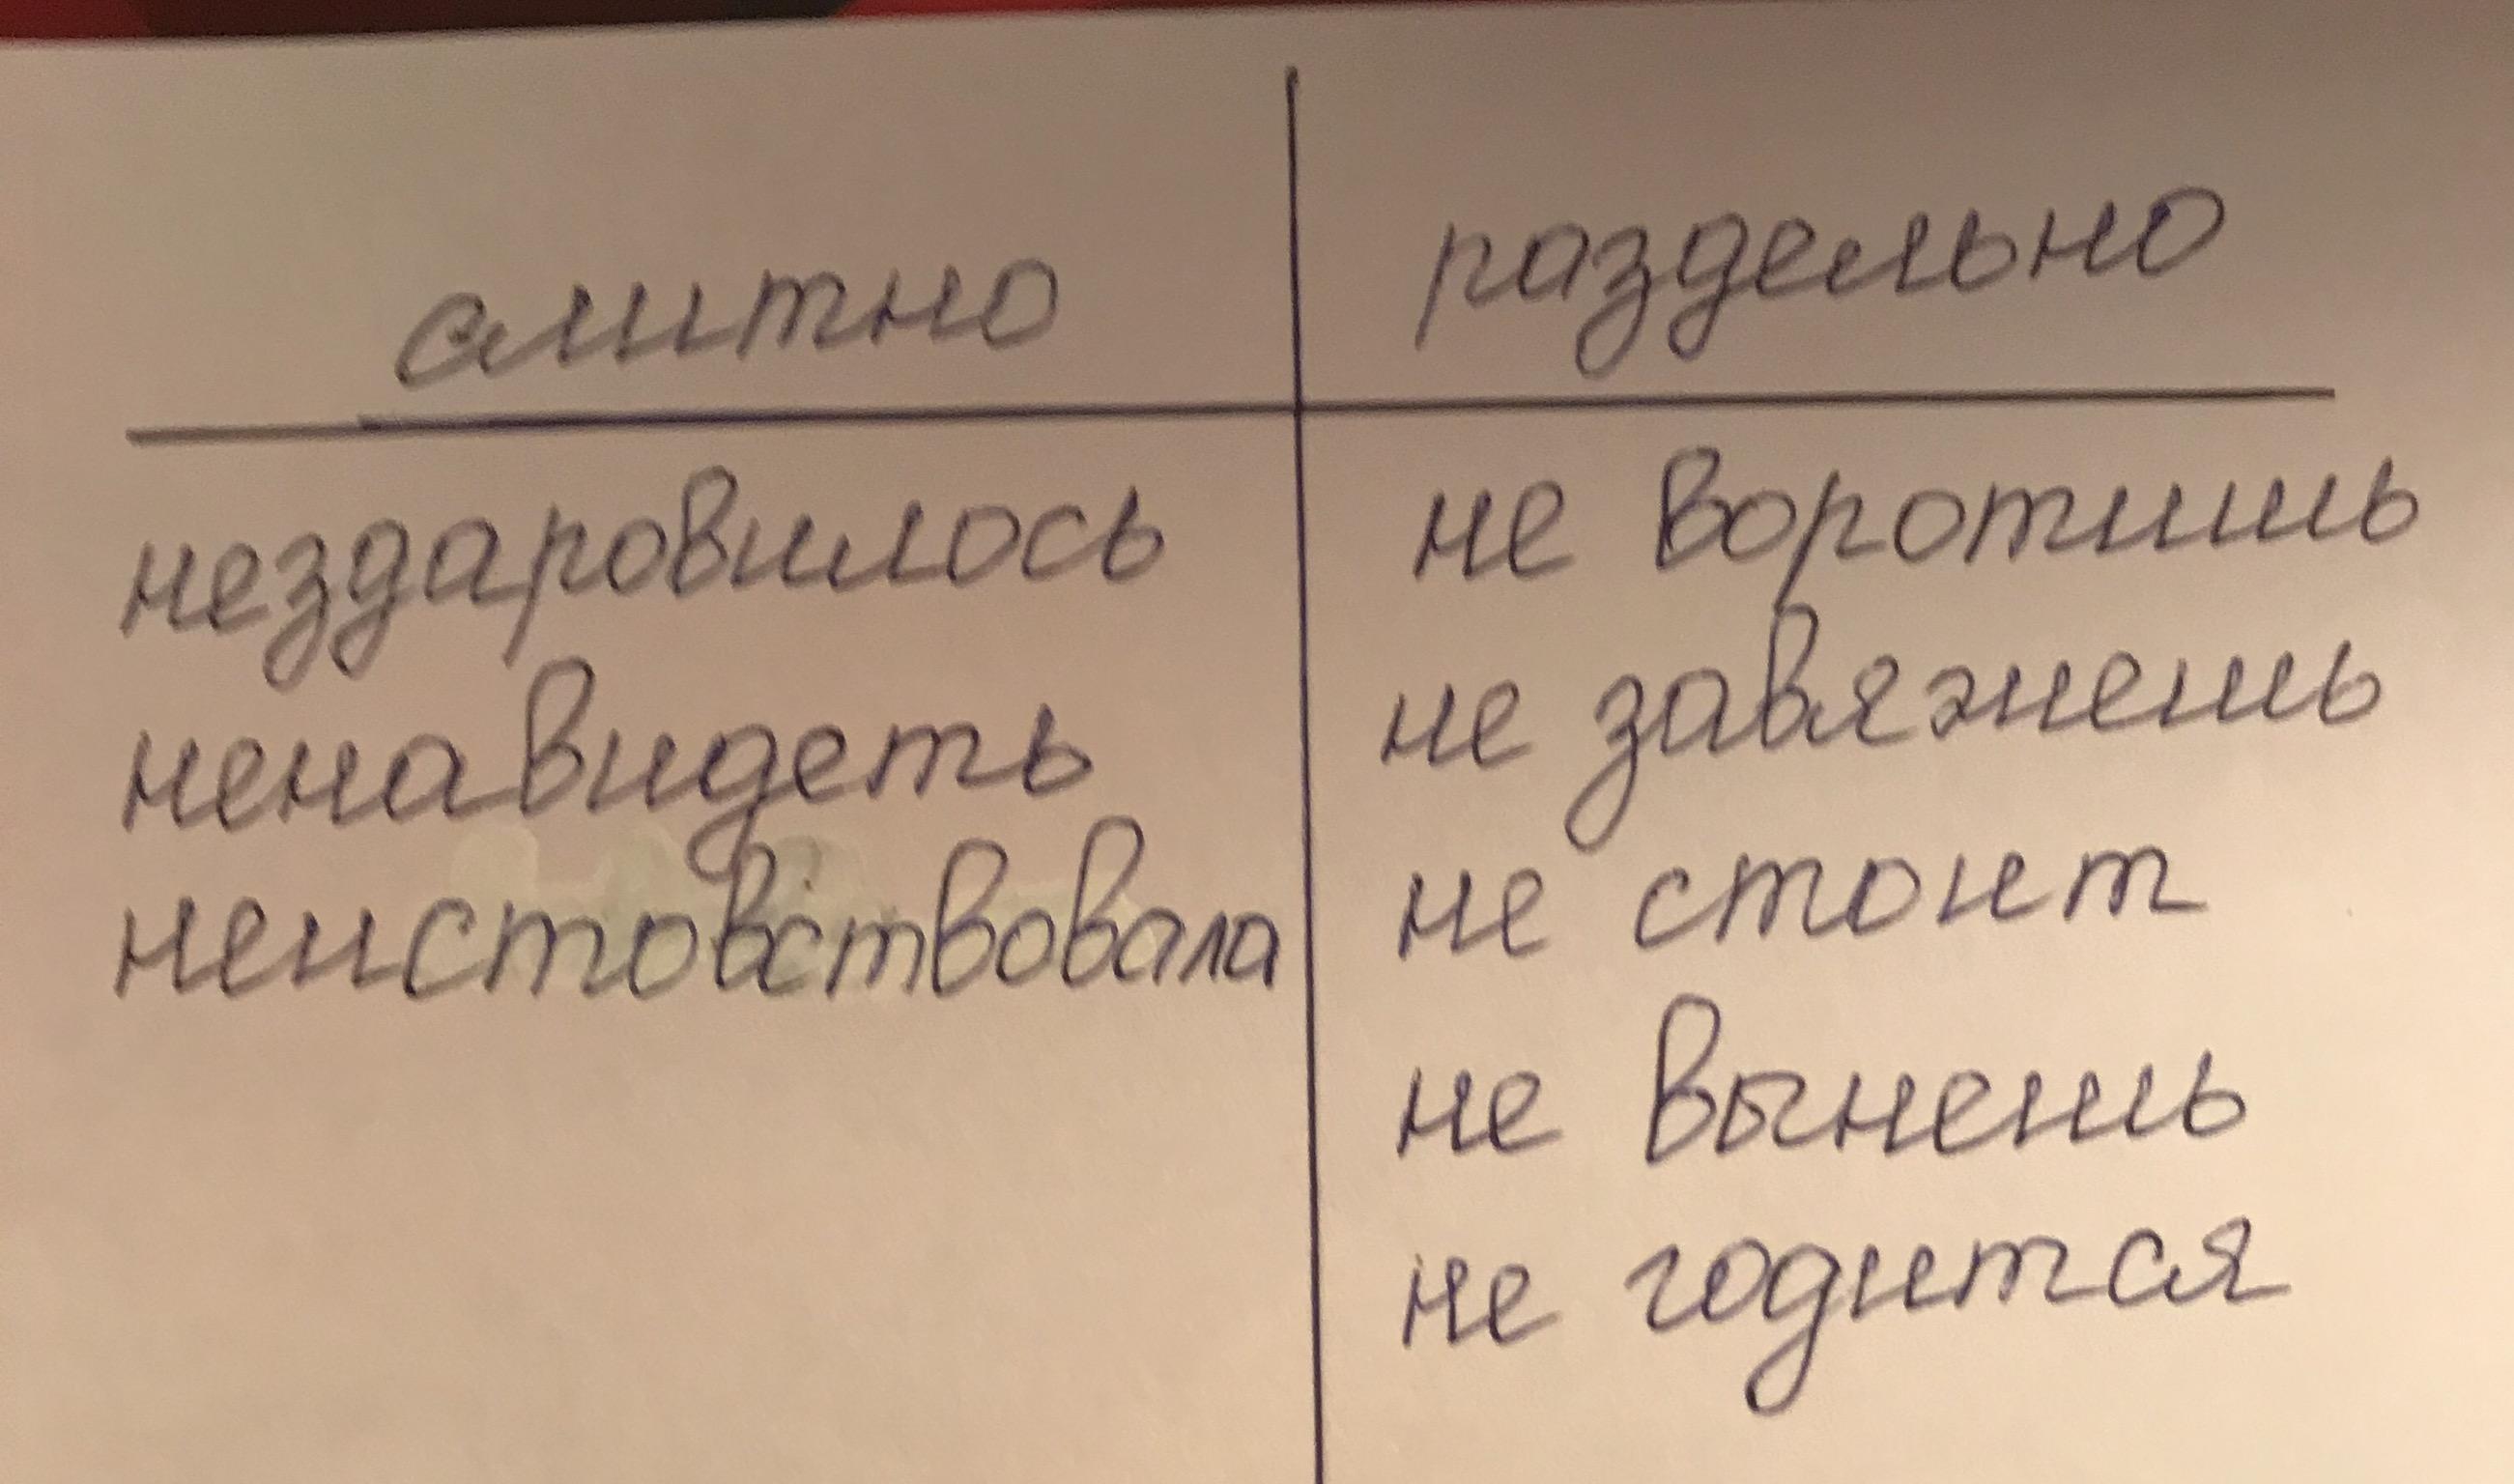 слитно
раздельно
нездаровилось
ненавидеть
неистовствовала
не воротишь
не завяжешь
не стоит
не вынешь
не годится